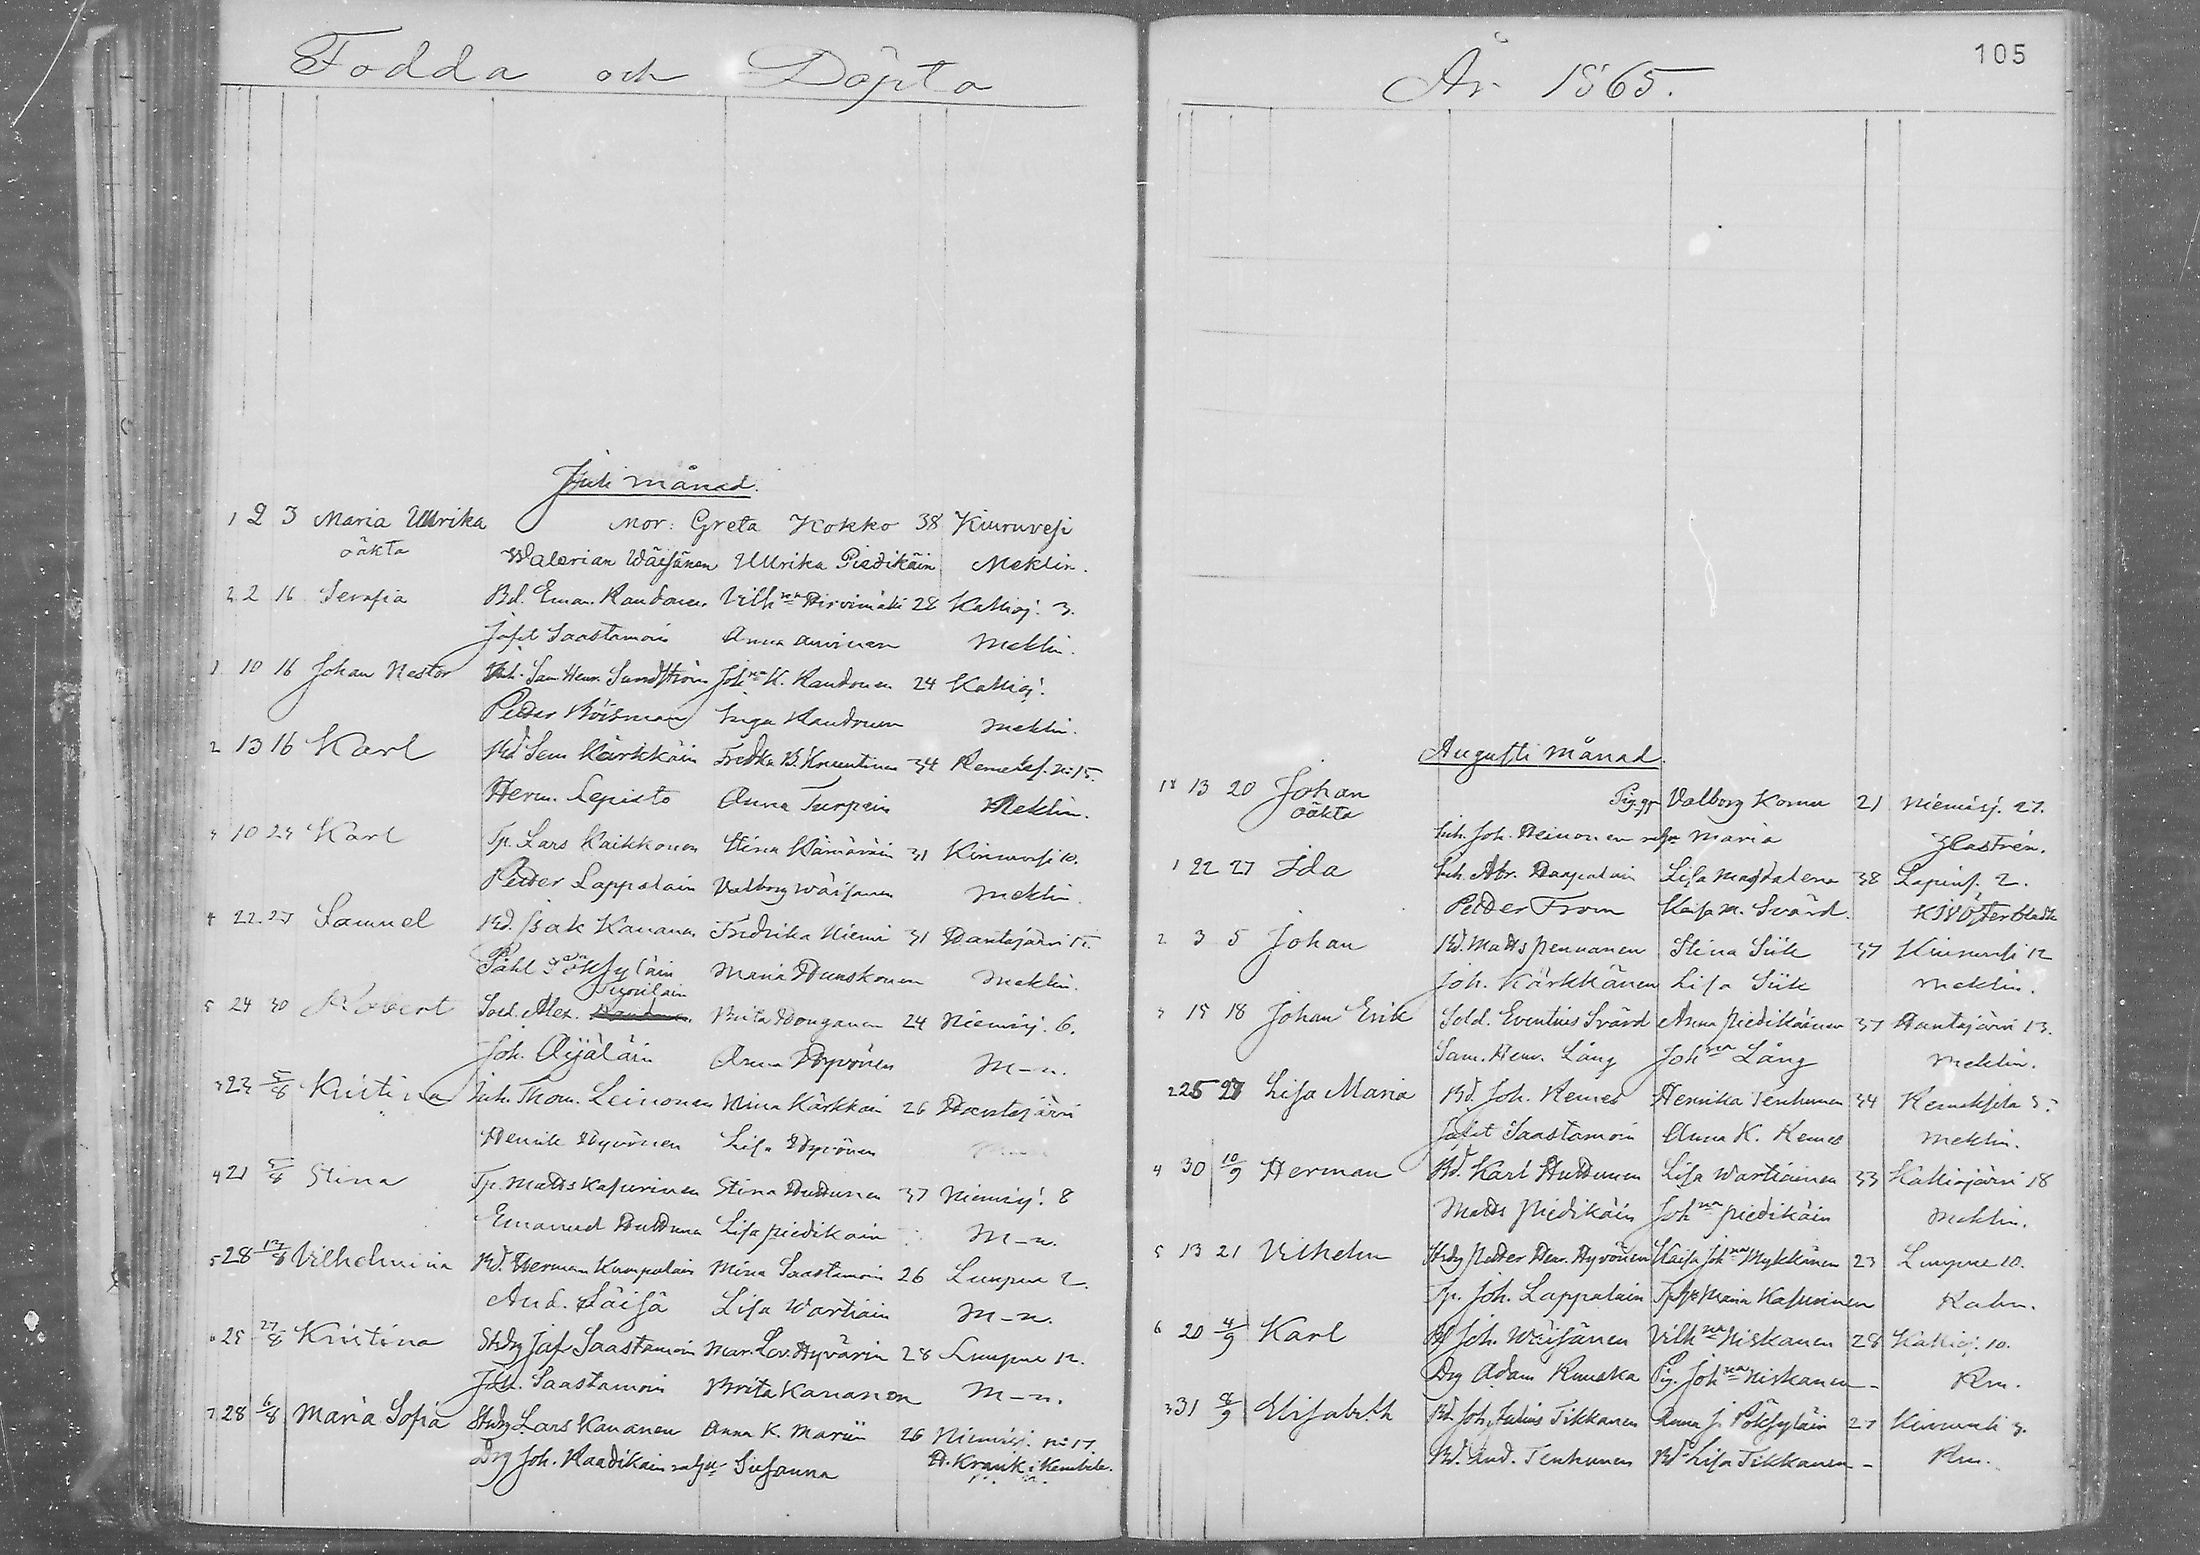 Fodda och Döpta
Juli månad.
1 2 3 Maria Ullrika Mor: Greta Kokko 38 Kiuruvesi
oäkta Walerian Wäisänen Ullrika Piedikäin Meklin.
2 2 16 Serafia Bd. Eman. Raudonen Vilhna Hirvimäki 28 Kallioj. 3.
Jafet Saastamoin Anna Meklin.
1 10 16 Johan Nestor Inh. Sam Henr. Sundström Johna K. Raudonen 24 Kallioj.
Petter Böisman Inga Raudonen Meklin.
2 13 16 Karl Bd. Sem Kärkkäin Fredka B. 34 No 15.
Herm. Lepistö Anna Turpein Meklin.
3 10 23 Karl Tp. Lars Kaikkonen Stina Kämäräin 31 Kiuruvesi 10.
Petter Lappalain Valborg Wäisänen Meklin.
4 22. 23 Samuel Bd. Isak Kananen Fredrika Niemi 31 Hautajärvi 15.
Påhl Pöksyläin Maria Huuskonen Meklin.
Tuovilain
5 24 30 Robert Sold. Alex. Brita Honganen 24 Niemisj. 6.
Joh. Äijäläin Anna Hyvönen M-n.
3 23 5/8 Kristina Inh. Thom. Leinonen Mina Kärkkäin 26 Hautajärvi
Henrik Hyvönen Lisa Hyvönen
4 21 5/8 Stina Tp. Matts Kasurinen Stina Huttunen 37 Niemisj. 8
Emanuel Huttunen Lisa Piedikäin M-n.
5 28 13/8 Vilhelmina Bd. Herman Kumpulain Mina Saastamoin 26 Luupue 2.
And. Räisä Lisa Wartiain M-n.
6 25 27/8 Kristina Stsdrg Jaf. Saastamoin Mar. Lov. Hyvärin 28 Luupue 12.
Joh. Saastamoin Brita Kananen M-n.
7 28 6/8 Maria Sofia Stsdrg Lars Kananen Anna K. Mariin 26 Niemisj. No 17.
Drg Joh. Raadikain Susanna H. Krank i Kembele.
105
År 1865.
Augusti månad.
13 20 Johan Pig. Valborg Komu 21 Niemisj. 27.
oäkta
Inh. Joh. Heinonen Maria Zastrén.
1 22 27 Ida Inh. Abr. Haapalain Lisa Magdalena 38 Lapins. 2.
Petter From Kaisa M. Svärd. Österbladh
2 3 5 Johan Bd. Matts Pennanen Stina Siik 37 Kiuruvesi 12
Joh. Kärkkänen Lisa Siik Meklin.
3 15 18 Johan Erik Sold. Eventius Svärd Anna Piedikäinen 37 Hautajärvi 13.
Sam. Henr. Lång Johna Lång Meklin.
2 25 27 Lisa Maria Bd. Joh. Remes Henrika Tenhunen 34 5.
Jafet Saastamoin Anna K. Remes Meklin.
4 30 10/9 Herman Bd. Karl Huttunen Lisa Wartiainen 33 Kalliojärvi 18
Matts Piedikäin Johna Piedikäin Meklin.
5 13 21 Vilhelm Stsdrg Petter Henr. Hyvönen Kaisa Johna Mykkänen 23 Luupue 10.
Tp. Joh. Lappalain Maria Kasurinen Rahm.
6 20 4/9 Karl Bd Joh. Wäisänen Vilhna Niskanen 28 Kallioj. 10.
Drg Adam Ruuska Pig. Johna Niskanen - Rm.
3 31 8/9 Elisabeth Bd. Joh. Julius Tikkanen Anna J. Pöksyläin 27 Kiuruvesi 3.
Bd. And. Tenhunen Bd Lisa Tikkanen - Rm.